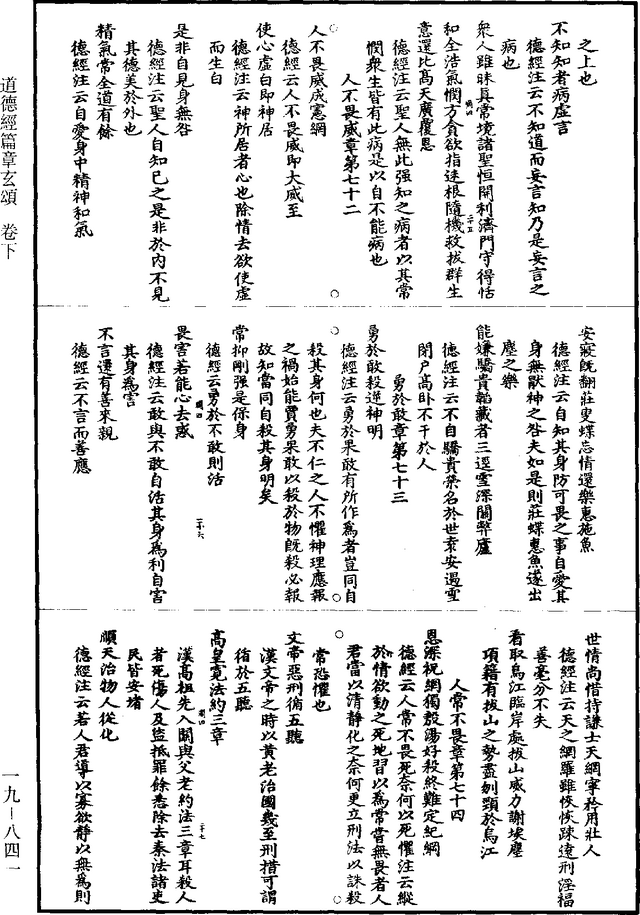 道德經篇章玄頌　卷下
之上也
不知知者病虛言
德經注云不知道而妄言知乃是妄言之
病也
衆人雖昧真常境諸聖恒開利濟門守得恬
和全浩氣憫方貪欲指迷根隨機救拔群生
意還比髙天廣覆恩
德經注云聖人無此强知之病者以其常
憫衆生皆有此病是以自不能病也
人不畏威章第七十二
人不畏威成憲網
德經云人不畏威即大威至
使心虛白即神居
德經注云神所居者心也除情去欲使虛
而生白
是非自見身無咎
德經注云聖人自知已之是非於内不見
其德美於外也
精氣常全道有餘
德經注云自愛身中精神和氣
安寢旣翻莊叟蝶忘情還樂惠施魚
德經注云自知其身防可畏之事自愛其
身無厭神之咎夫如是則莊蝶惠魚遂出
塵之樂
能嫌驕貴韜藏者三逕雪深關弊廬
德經注云不自驕貴榮名於世袁安遇雪
閉户髙卧不干於人
勇於敢章第七十三
勇於敢殺逆神明
德經注云勇於果敢有所作爲者豈同自
殺其身何也夫不仁之人不懼神理應報
之禍始能賈勇果敢以殺於物旣殺必報
故知當同自殺其身明矣
常抑剛强是保身
德經云勇於不敢則活
畏害若能心去惑
德經注云敢與不敢自活其身爲利自害
其身爲害
不言還有善來親
德經云不言而善應
世情尚惜持謙士天網寧矜用壯人
德經注云天之網羅雖恢恢踈遠刑淫福
善毫分不失
看取烏江臨岸處拔山威力謝埃塵
項籍有拔山之勢盡刎頸於烏江
人常不畏章第七十四
恩深祝網獨殷湯好殺終難定紀綱
德經云人常不畏死奈何以死懼注云縱
於情欲動之死地習以爲常當無畏者人
君當以清靜化之奈何更立刑法以誅殺
常恐懼也
文帝惡刑循五聽
漢文帝之時以黄老治國幾至刑措可謂
循於五聽
高皇寬法約三章
漢髙祖先入關與父老約法三章耳殺人
者死傷人及盜抵罪餘悉除去秦法諸吏
民皆安堵
順天治物人從化
德經注云若人君導以寡欲靜以無爲則
一九－八四一